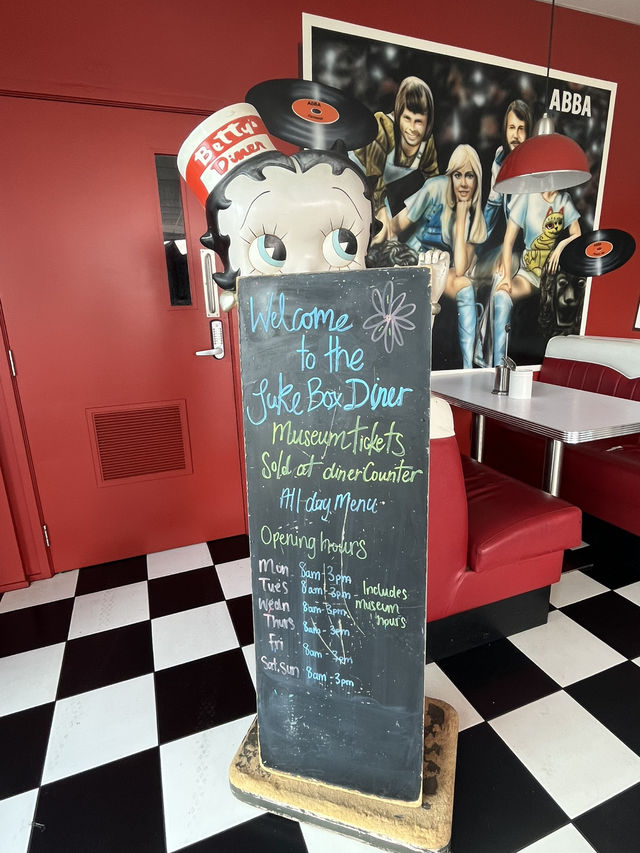 ABBA
Betty's
Diner
ABBA
Welcome
to the
Juke Box Diner
Museum tickets
Sold at diner Counter
All day Menu
Opening hours
Mon 8am - 3pm
Tues 8am - 3pm
Wedn 8am - 3pm
Thurs 8am - 3pm
Fri 8am - 3pm
Sat. Sun 8am - 3pm
Includes
museum
hours